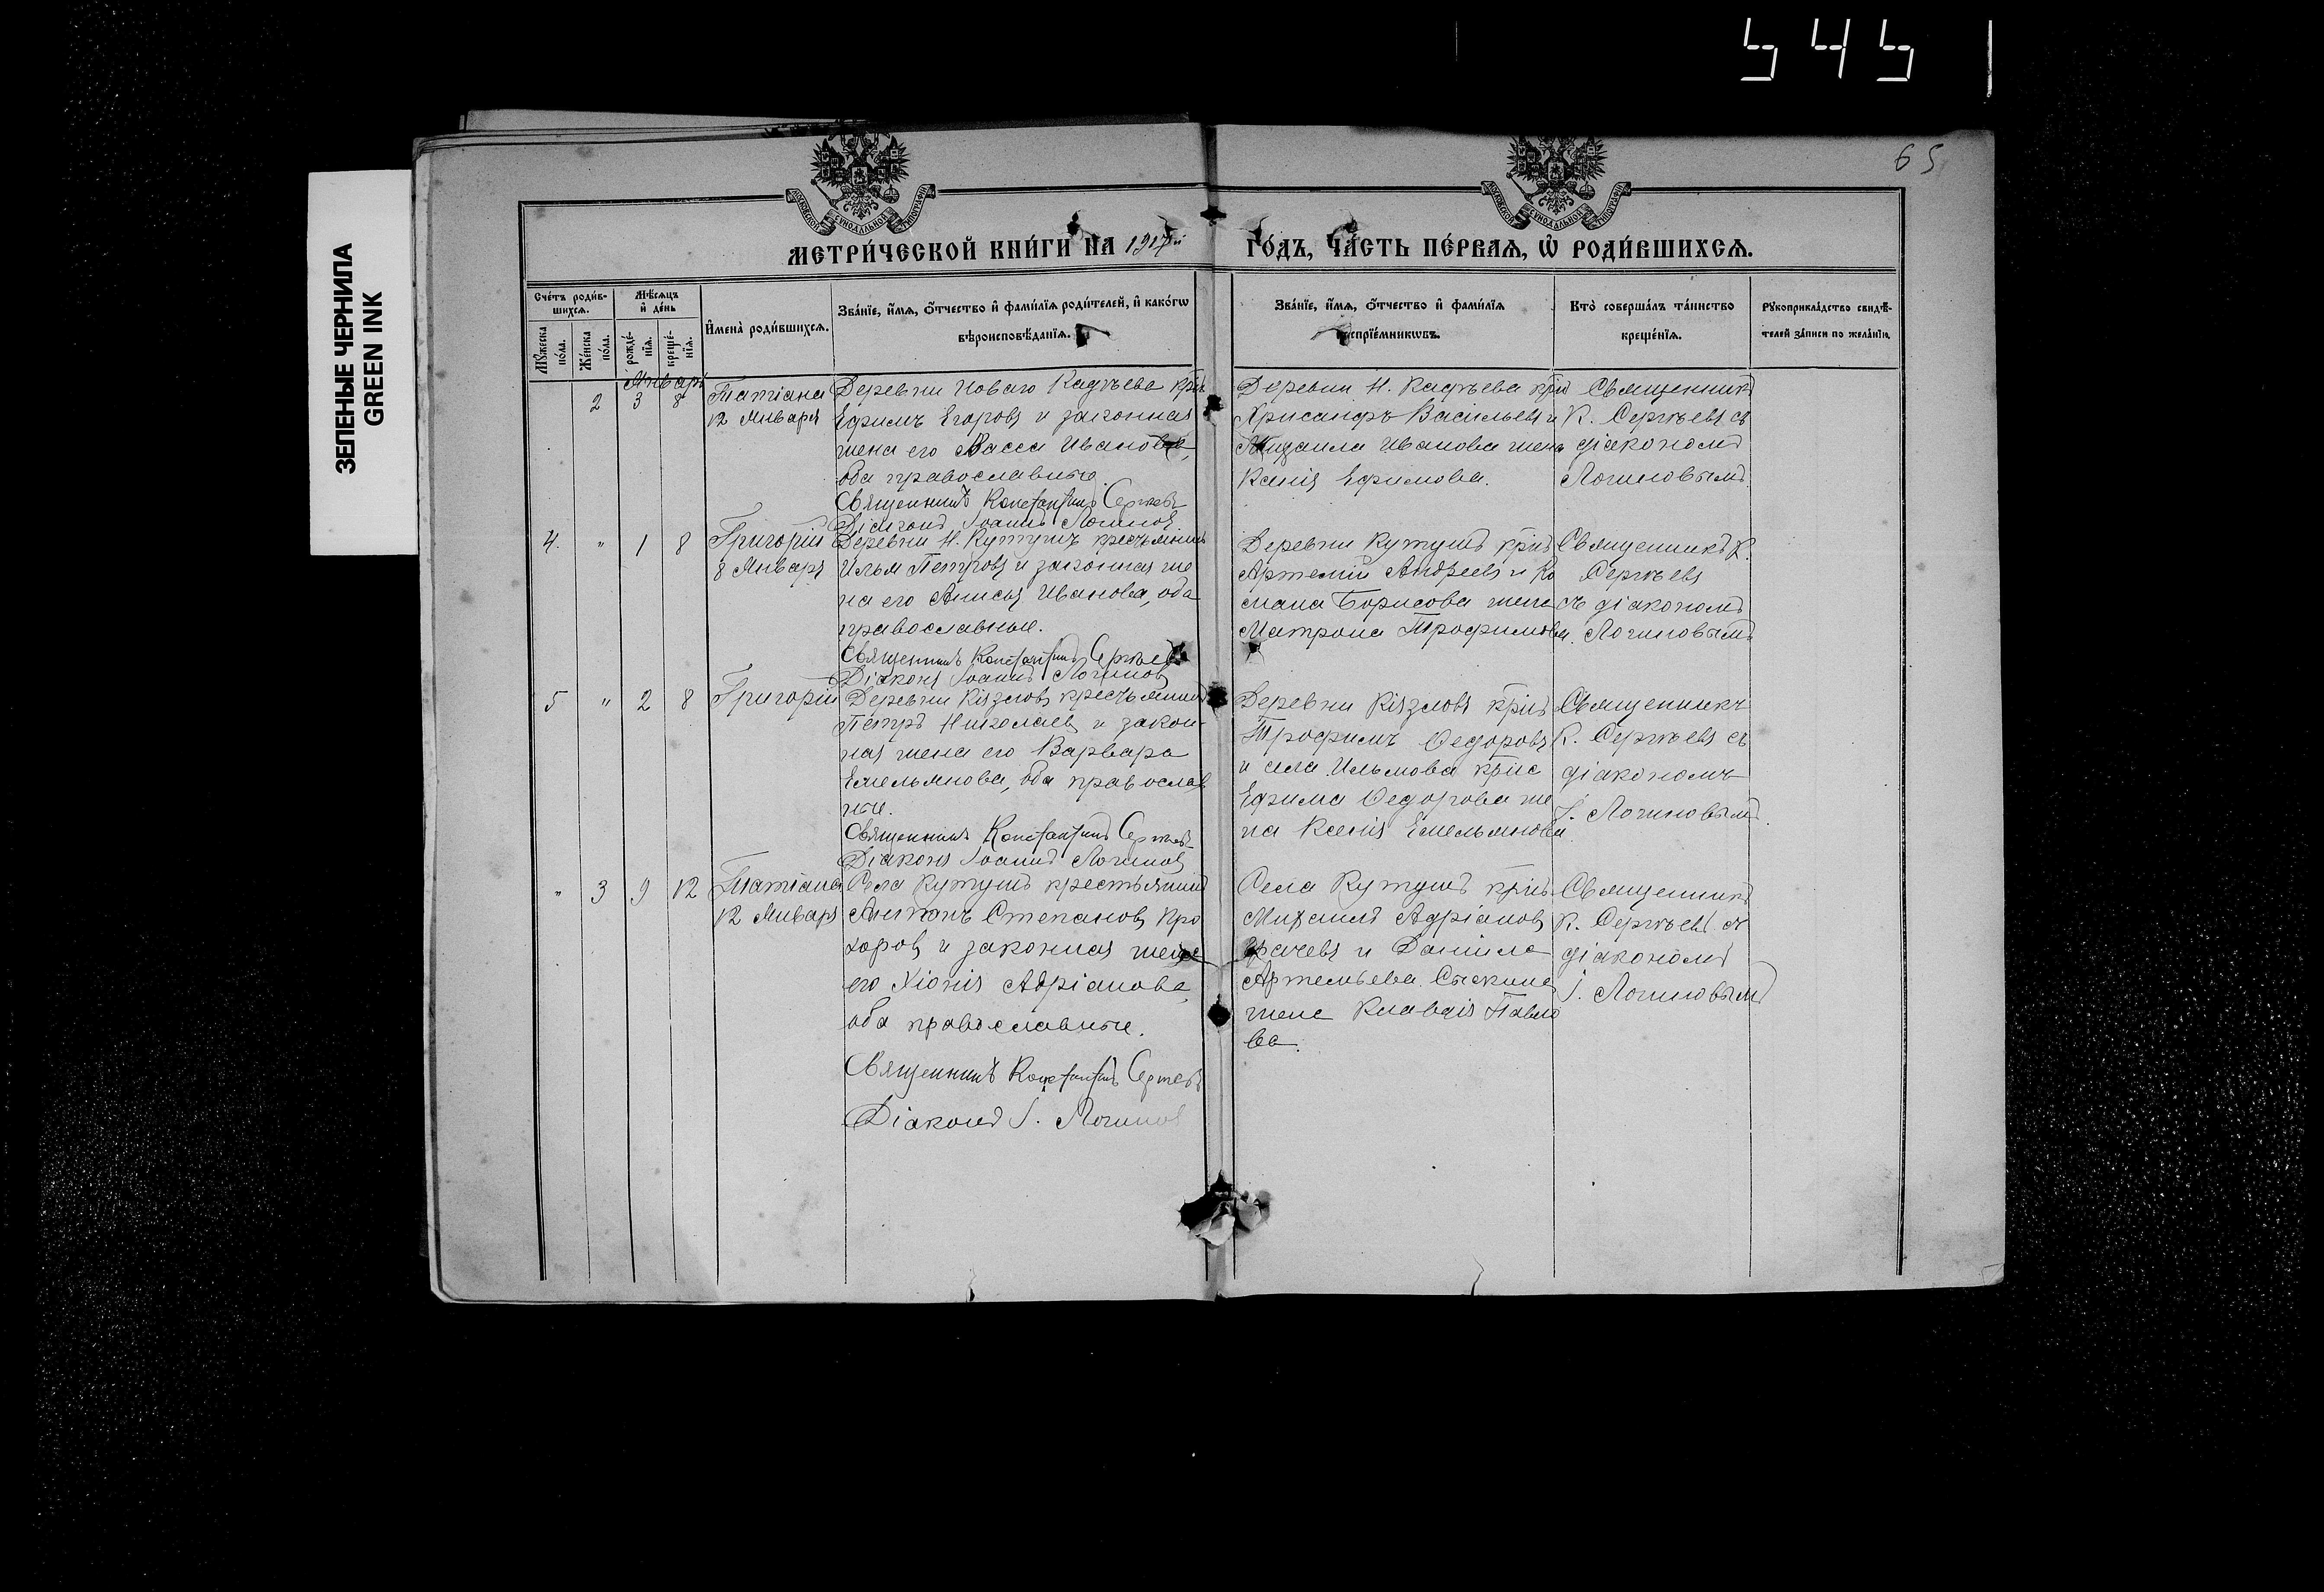 545
ЗЕЛЕНЫЕ ЧЕРНИЛА
GREEN INK
65
МОСКОВСКОЙ СѴНОДАЛЬНОЙ ТИПОГРАФІИ
МОСКОВСКОЙ СѴНОДАЛЬНОЙ ТИПОГРАФІИ
МЕТРИ́ЧЕСКОЙ КНИ́ГИ НА 1917й
ГО́ДЪ, ЧА́СТЬ ПЕ́РВАѦ, Ѽ РОДИ́ВШИХСѦ.
Сче́тъ роди́в-
шихсѧ.
Мꙋ́жеска по́ла.
Же́нска по́ла.
Мѣ́сѧцъ
и҆ де́нь
рожде́-
нїѧ.
креще́-
нїѧ.
И҆мена̀ роди́вшихсѧ.
Зва́нїе, и҆́мѧ, ѻ҆́тчество и҆ фами́лїѧ роди́телей, и҆ како́гѡ
вѣроисповѣ́данїѧ.
Зва́нїе, и҆́мѧ, ѻ҆́тчество и҆ фами́лїѧ
воспрїе́мникѡвъ.
Кто̀ соверша́лъ та́инство
креще́нїѧ.
Рꙋкоприкла́дство свидѣ́-
телей за́писи по жела́нїю.
Январь
2 3 8
Татіана
12 Января
Деревни Новаго Кадѣева крнъ
Ефимъ Егоровъ и законная
жена его Васса Иванова,
оба православные.
Священникъ Константинъ Сергѣевъ
Діаконъ Іоаннъ Логиновъ
Деревни Н. Кадѣева крнъ
Хрисанфъ Васильевъ и
Михаила Иванова жена
Ксенія Ефимова.
Священникъ
К. Сергѣевъ съ
діакономъ
Логиновымъ.
4. " 1 8
Григорій
8 Января
Деревни Н. Кутушъ крестьянинъ
Илья Петровъ и законная же
на его Анисья Иванова, оба
православные.
Священникъ Константинъ Сергѣевъ
Діаконъ Іоаннъ Логиновъ
Деревни Кутушъ крнъ
Артемій Андреевъ и Ро
мана Борисова жена
Матрона Трофимова.
Священникъ К.
Сергѣевъ
съ діакономъ
Логиновымъ
5 " 2 8
Григорій
Деревни Кіязловъ крестьянинъ
Петръ Николаевъ и закон-
ная жена его Варвара
Емельянова, оба православ
ные.
Священникъ Константинъ Сергѣевъ
Діаконъ Іоаннъ Логиновъ
Деревни Кіязловъ крнъ
Трофимъ Ѳедоровъ
и села Ильмова крна
Ефима Ѳедорова же
на Ксенія Емельянова
Священникъ
К. Сергѣевъ съ
діакономъ
І. Логиновымъ.
" 3 9 12
Татіана
12 Января
Села Кутушъ крестьянинъ
Антонъ Степановъ Про
хоровъ и законная жена
его Хіонія Адріанова,
оба православные.
Священникъ Константинъ Сергѣевъ
Діаконъ І. Логиновъ
Села Кутушъ крнъ
Михаилъ Адріановъ
Грачевъ и Даніила
Артемьева
жена Клавдія Павло
ва.
Священникъ
К. Сергѣевъ съ
діакономъ
І. Логиновымъ